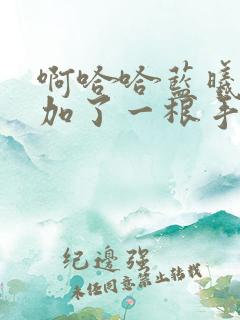 啊哈哈蓝曦
加了一根手
纪邊强
未经同意禁止转载